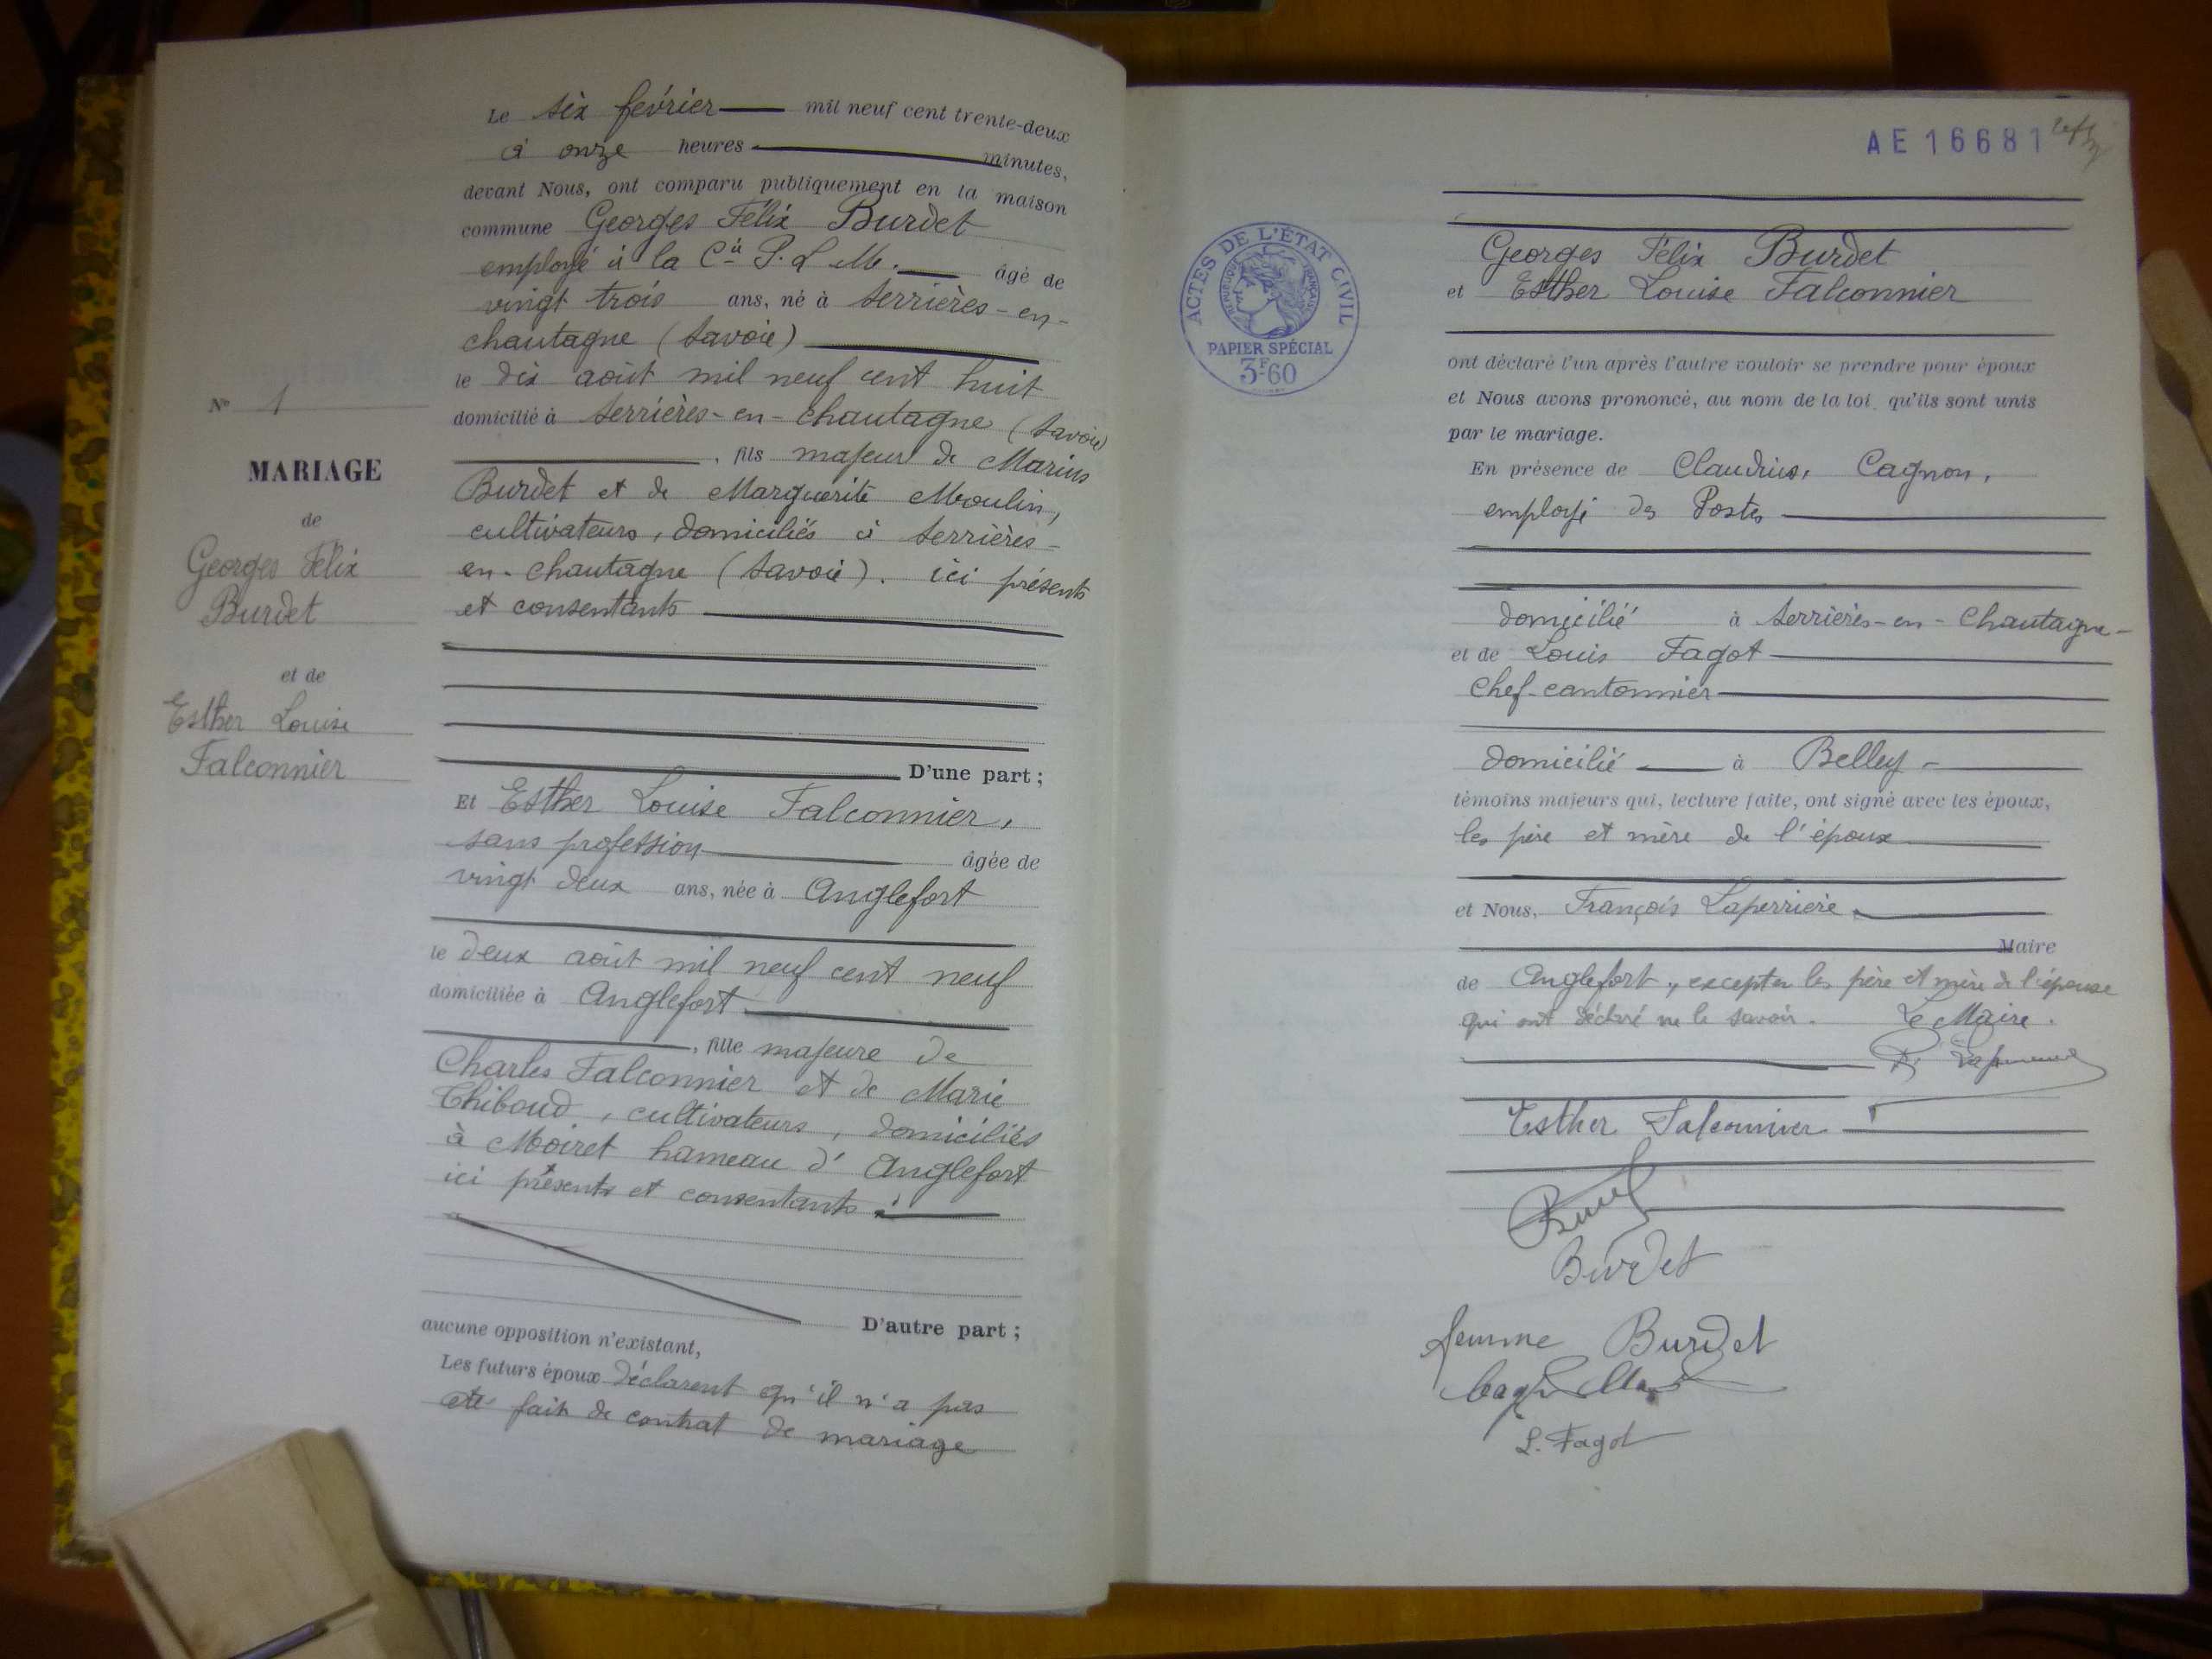 Le six février mil neuf cent trente-deux
à onze heures minutes,
devant Nous, ont comparu publiquement en la maison
commune Georges Félix Burdet
employé à la Cie P. L M. âgé de
vingt trois ans, né à Serrières-en-
chautagne (Savoie)
le dix août mil neuf cent huit
domicilié à Serrières-en-chautagne (Savoie)
, fils majeur de Marius
Burdet et de Marguerite Moulin,
cultivateurs, domiciliés à Serrières-
en-chautagne (Savoie). ici présents
et consentants
D'une part ;
Et Esther Louise Falconnier,
sans profession âgée de
vingt deux ans, née à Anglefort
le deux août mil neuf cent neuf
domiciliée à Anglefort
, fille majeure de
Charles Falconnier et de Marie
Thiboud, cultivateurs, domiciliés
à Moiret hameau d'Anglefort
ici présents et consentants.
D'autre part ;
aucune opposition n'existant,
Les futurs époux déclarent qu'il n'a pas
été fait de contrat de mariage
No 1
MARIAGE
de
Georges Félix
Burdet
et de
Esther Louise
Falconnier
AE 16681
ACTES DE L'ÉTAT CIVIL
RÉPUBLIQUE FRANÇAISE
PAPIER SPÉCIAL
3F60
Georges Félix Burdet
et Esther Louise Falconnier
ont déclaré l'un après l'autre vouloir se prendre pour époux
et Nous avons prononcé, au nom de la loi qu'ils sont unis
par le mariage.
En présence de Claudius, Cagnon,
employé des Postes
domicilié à Serrières-en-Chautagne-
et de Louis Fagot
Chef-cantonnier
domicilié à Belley-
témoins majeurs qui, lecture faite, ont signé avec les époux,
les père et mère de l'époux
et Nous, François Laperrière
Maire
de Anglefort, excepter les père et mère de l'épouse
qui ont déclaré ne le savoir. Le Maire.
Esther Falconnier
Burdet
femme Burdet
L. Fagot